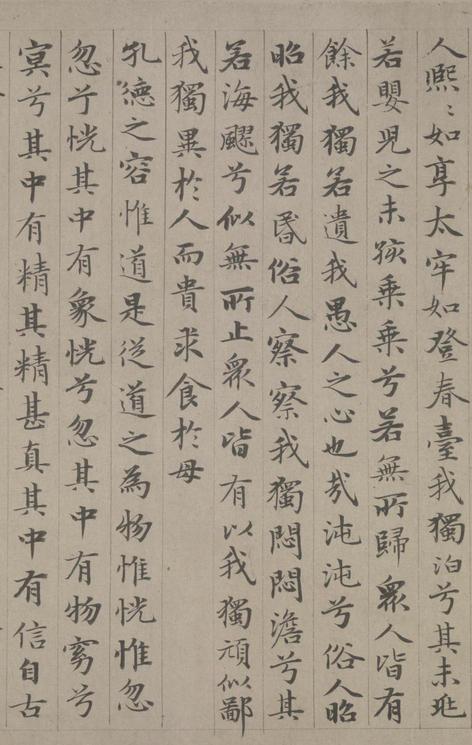 人熈〻如享太牢如登春臺我獨泊兮其未兆
若嬰兒之未孩乘乘兮若無所歸衆人皆有
餘我獨若遺我愚人之心也哉沌沌兮俗人昭
昭我獨若昏俗人察察我獨悶悶澹兮其
若海飂兮似無所止衆人皆有以我獨頑似鄙
我獨異於人而貴求食於母
孔德之容惟道是從道之為物惟恍惟忽
忽兮恍其中有象恍兮忽其中有物窈兮
冥兮其中有精其精甚真其中有信自古